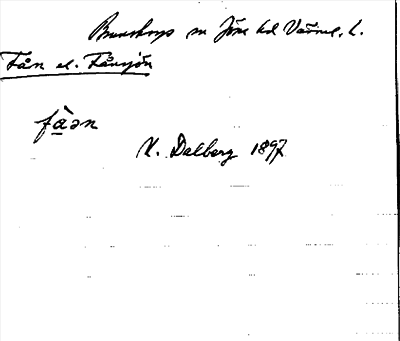 Brunskogs sn Jösse hd Värml. l.
Fån el. Fånsjön
fà̲ən
K. Dalberg 1897